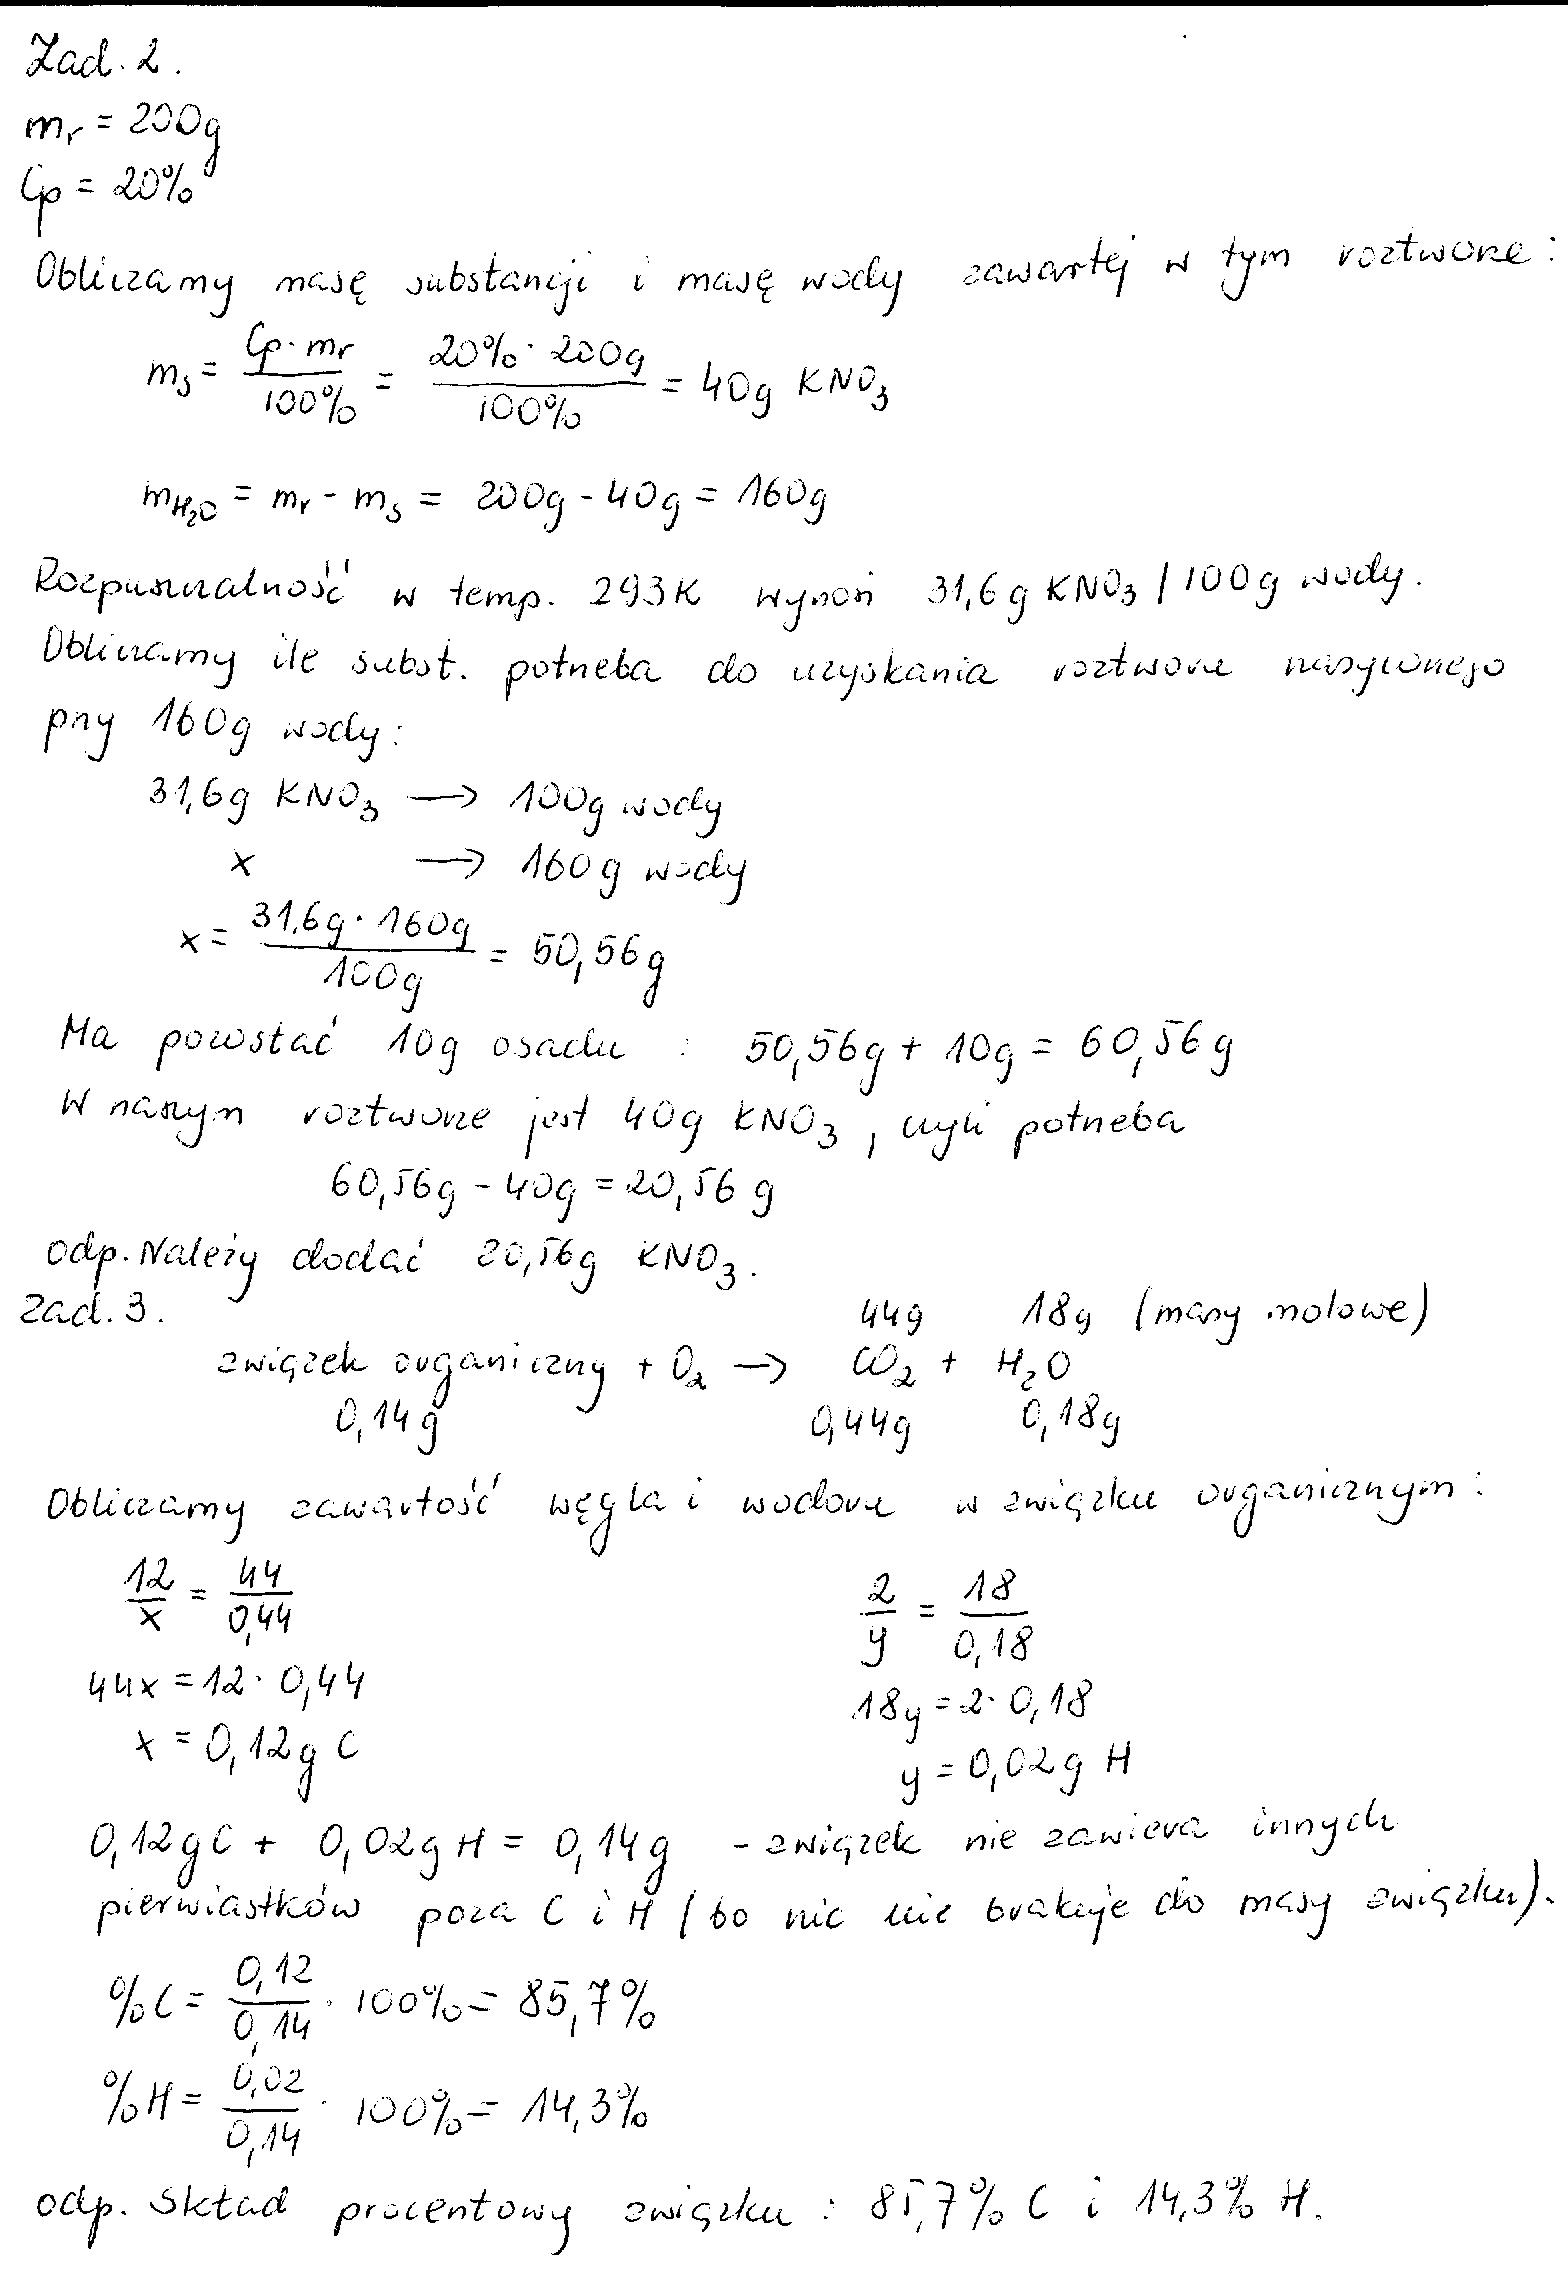 Zad. 2.
mᵣ = 200g
Cp = 20%
Obliczamy masę substancji i masę wody zawartej w tym roztworze:
mₛ = (Cp · mᵣ)/100% = (20% · 200g)/100% = 40g KNO₃
m_H₂O = mᵣ - mₛ = 200g - 40g = 160g
Rozpuszczalność w temp. 293K wynosi 31,6g KNO₃ / 100g wody.
Obliczamy ile subst. potrzeba do uzyskania roztworu nasyconego
przy 160g wody:
31,6g KNO₃ → 100g wody
x → 160g wody
x = (31,6g · 160g)/100g = 50,56g
Ma pozostać 10g osadu : 50,56g + 10g = 60,56g
W naszym roztworze jest 40g KNO₃, czyli potrzeba
60,56g - 40g = 20,56g
odp. Należy dodać 20,56g KNO₃.
Zad. 3.
44g 18g (masy molowe)
związek organiczny + O₂ → CO₂ + H₂O
0,14g 0,44g 0,18g
Obliczamy zawartość węgla i wodoru w związku organicznym:
12/x = 44/0,44 2/y = 18/0,18
44x = 12 · 0,44 18y = 2 · 0,18
x = 0,12g C y = 0,02g H
0,12g C + 0,02g H = 0,14g - związek nie zawiera innych
pierwiastków poza C i H (bo nic nie brakuje do masy związku).
%C = 0,12/0,14 · 100% = 85,7%
%H = 0,02/0,14 · 100% = 14,3%
odp. Skład procentowy związku : 85,7% C i 14,3% H.